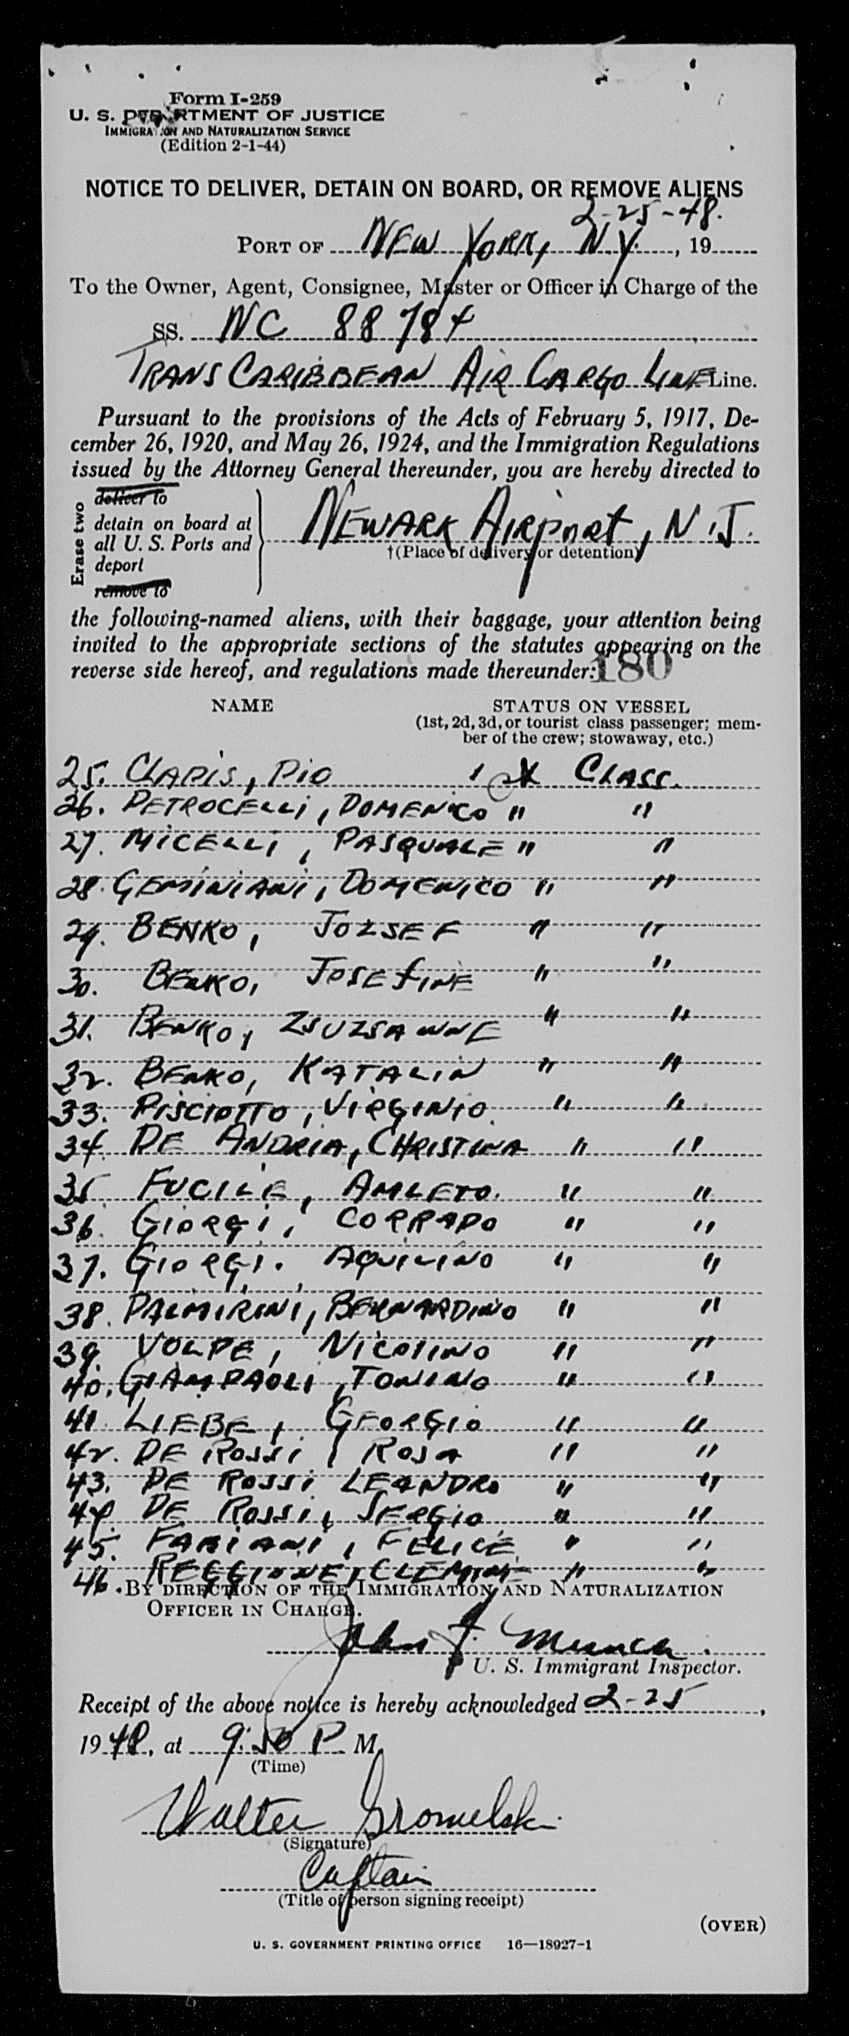 Form I-259
U. S. DEPARTMENT OF JUSTICE
IMMIGRATION AND NATURALIZATION SERVICE
(Edition 2-1-44)
NOTICE TO DELIVER, DETAIN ON BOARD, OR REMOVE ALIENS
2-25-48.
PORT OF NEW YORK, NY., 19
To the Owner, Agent, Consignee, Master or Officer in Charge of the
SS. NC 88784
TRANS CARIBBEAN AIR CARGO LINE Line.
Pursuant to the provisions of the Acts of February 5, 1917, De-
cember 26, 1920, and May 26, 1924, and the Immigration Regulations
issued by the Attorney General thereunder, you are hereby directed to
Erase two
deliver to
detain on board at
all U. S. Ports and
deport
remove to
NEWARK AIRPORT, N.J.
†(Place of delivery or detention)
the following-named aliens, with their baggage, your attention being
invited to the appropriate sections of the statutes appearing on the
reverse side hereof, and regulations made thereunder:
180
NAME STATUS ON VESSEL
(1st, 2d, 3d, or tourist class passenger; mem-
ber of the crew; stowaway, etc.)
25. CLAPIS, PIO 1 CLASS.
26. PETROCELLI, DOMENICO " "
27. MICELLI, PASQUALE " "
28. GEMINIANI, DOMENICO " "
29. BENKO, JOZSEF " "
30. BENKO, JOSEFINE " "
31. BENKO, ZSUZSANNE " "
32. BENKO, KATALIN " "
33. PISCIOTTO, VIRGINIO. " "
34. DE ANDRIA, CHRISTINA " "
35 FUCILE, AMLETO. " "
36. GIORGI, CORRADO " "
37. GIORGI. AQUILINO " "
38. PALMIRINI, BERNARDINO " "
39. VOLPE, NICOLINO " "
40. GIAMPAOLI, TONINO " "
41. LIEBE, GEORGIO " "
42. DE ROSSI, ROSA " "
43. DE ROSSI LEANDRO " "
44 DE ROSSI, SERGIO " "
45. FABIANI, FELICE " "
46. REGGIONE, " "
BY DIRECTION OF THE IMMIGRATION AND NATURALIZATION
OFFICER IN CHARGE.
John J.
U. S. Immigrant Inspector.
Receipt of the above notice is hereby acknowledged 2-25,
1948, at 9:50 P. M.
(Time)
Walter Gromelski
(Signature)
Captain
(Title of person signing receipt)
(OVER)
U. S. GOVERNMENT PRINTING OFFICE 16—18927-1